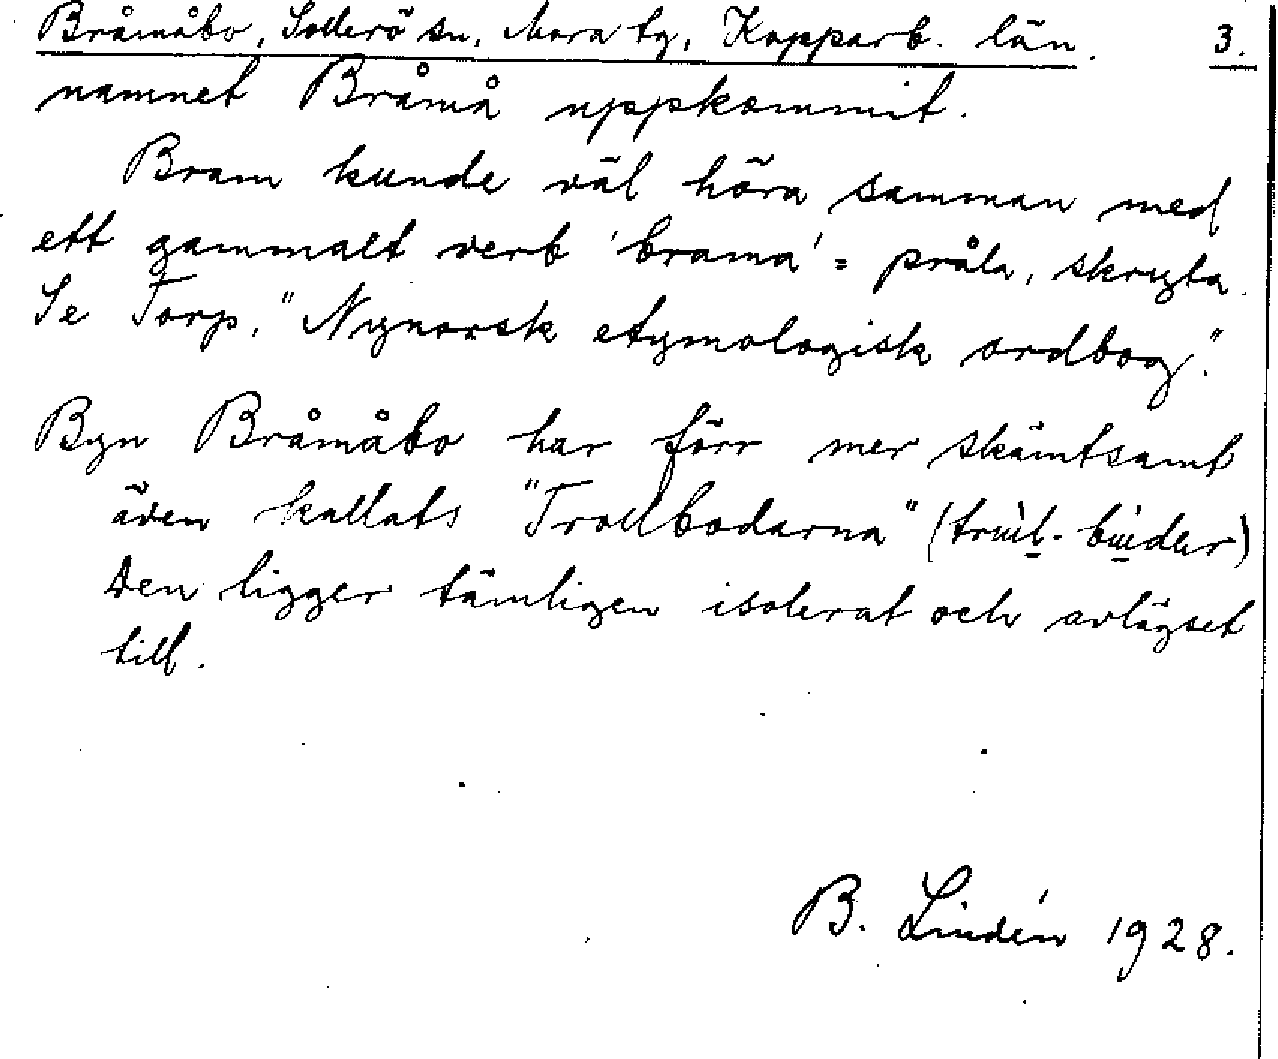 Bråmåbo, Sollerö sn, Mora tg, Kopparb. län. 3.
namnet Bråmå uppkommit.
Bram kunde väl höra samman med
ett gammalt verb 'brama' = pråla, skryta.
Se Torp, "Nynorsk etymologisk ordbog".
Byn Bråmåbo har förr mer skämtsamt
även kallats "Trollbodarna" (
Den ligger tämligen isolerat och avlägset
till.
B. Lindén 1928.